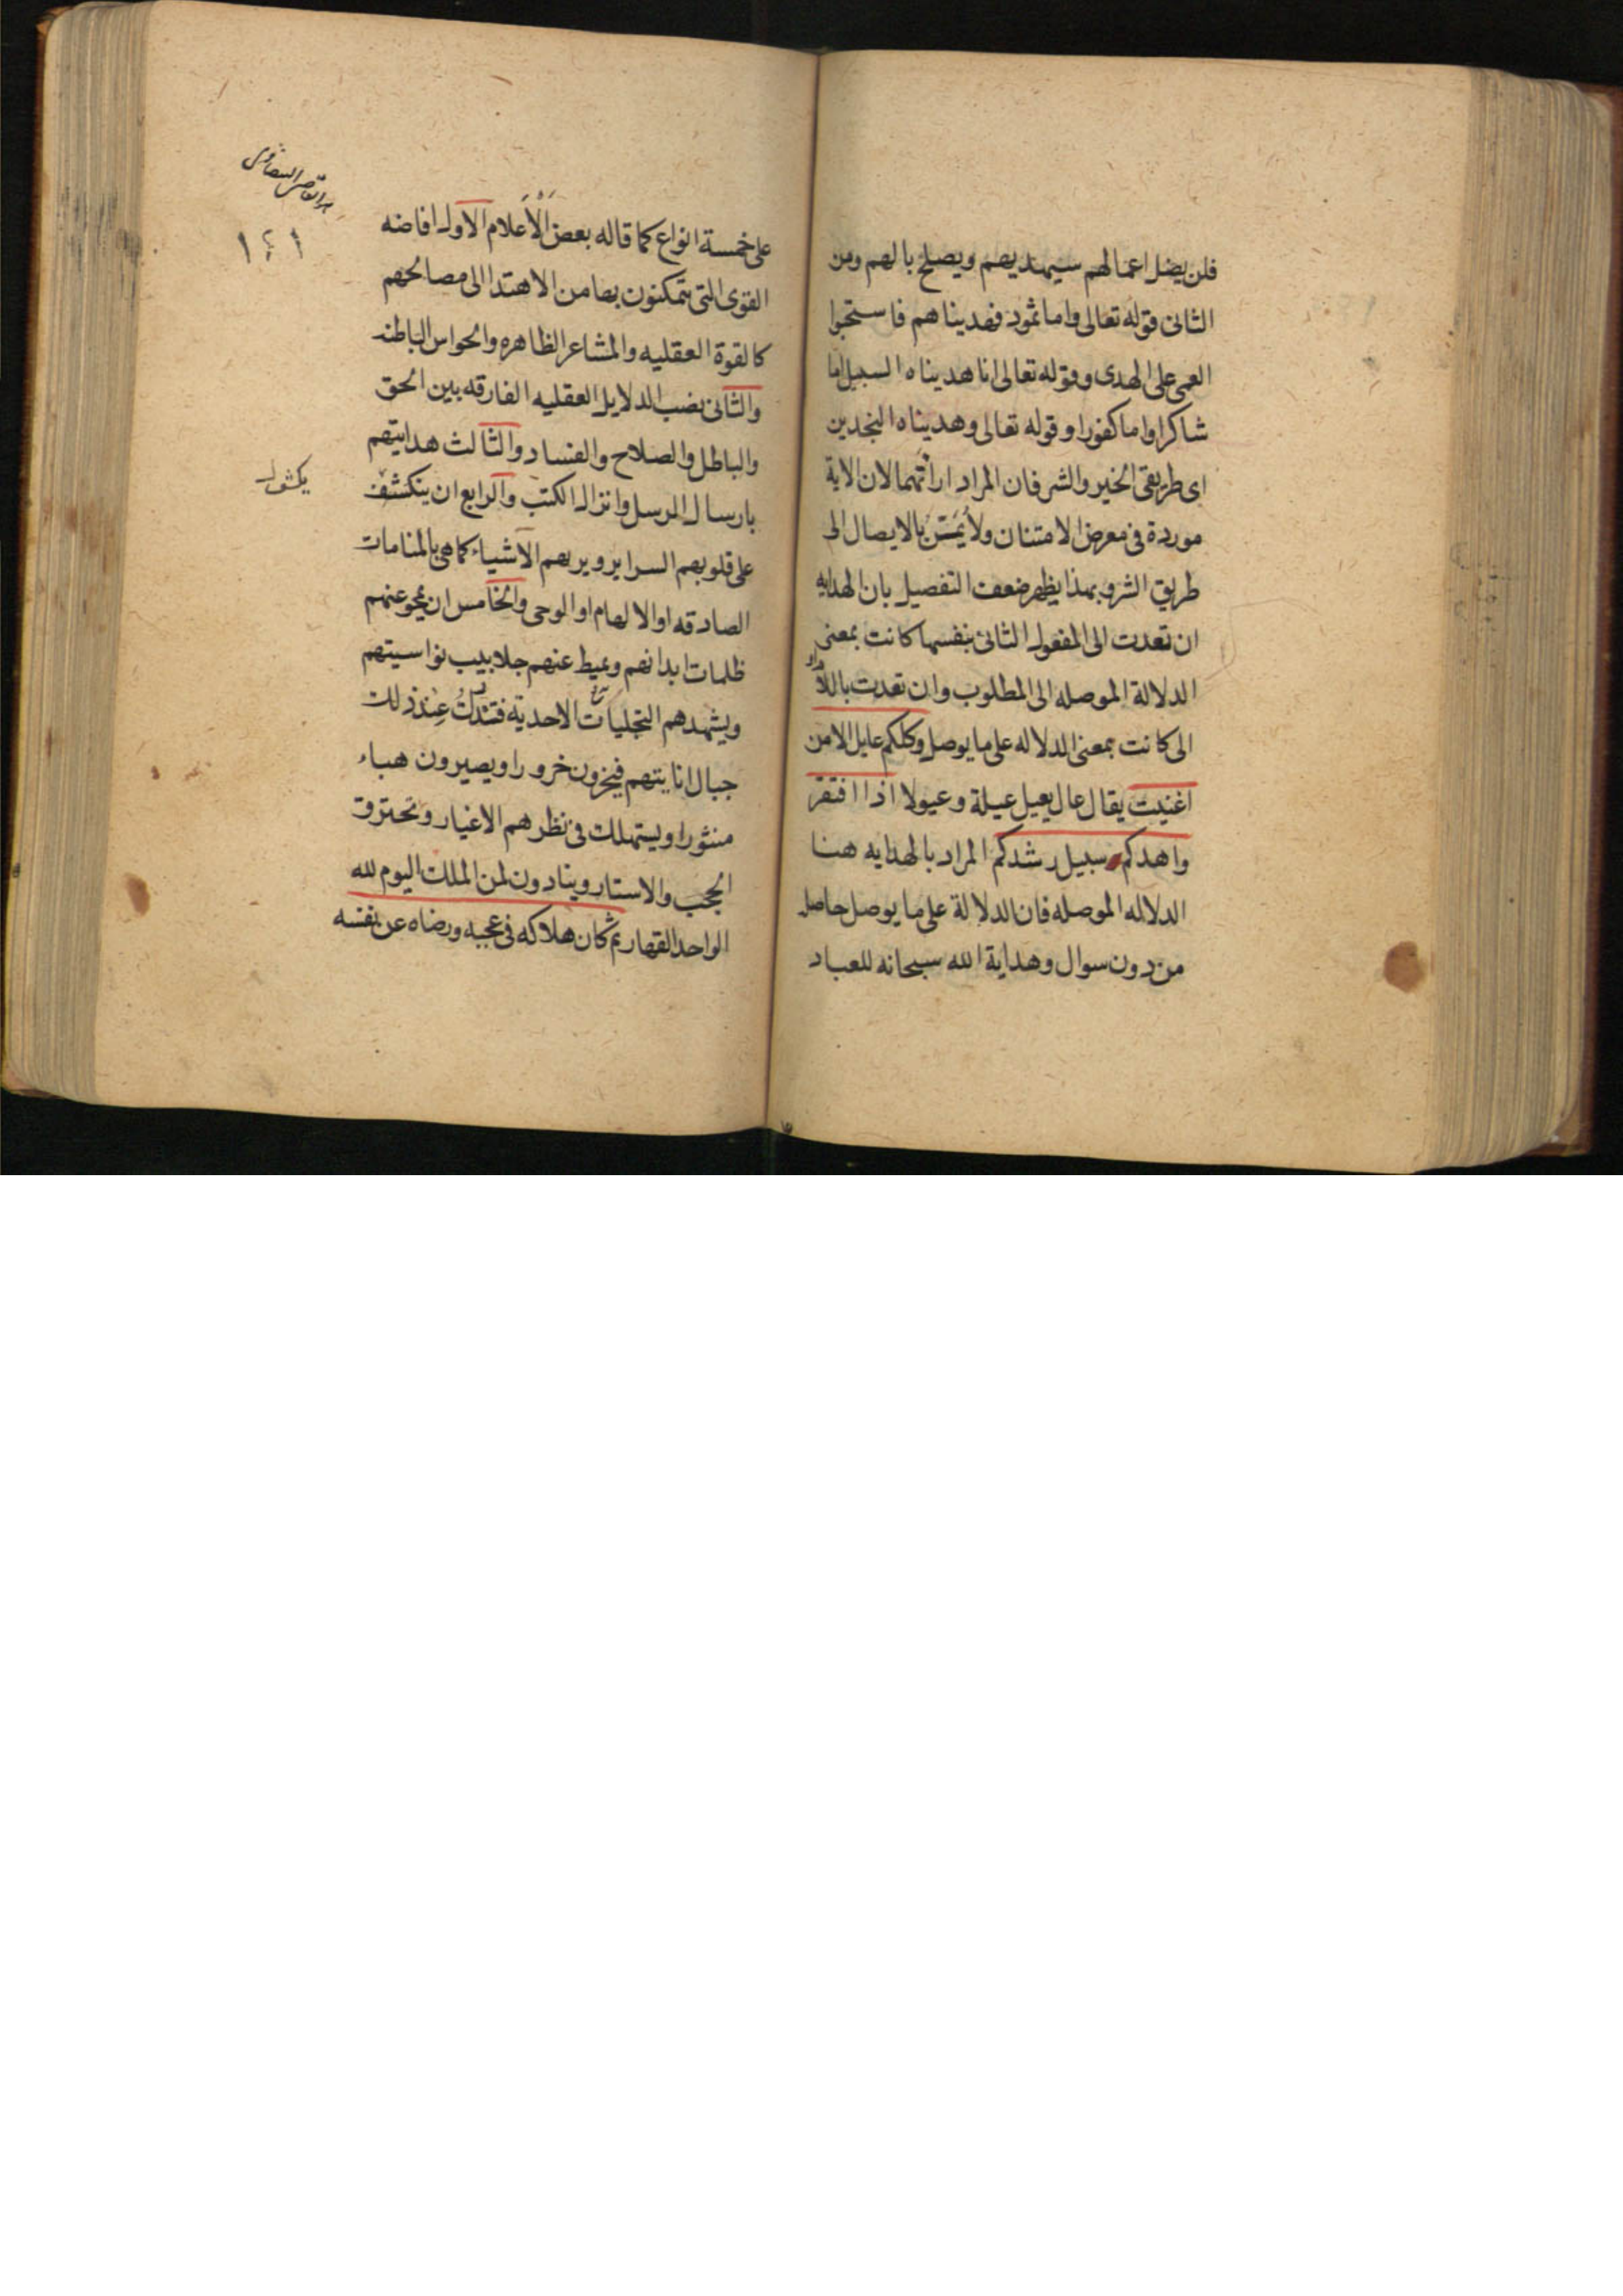 فلن يضل اعمالهم سيهديهم ويصلح بالهم ومن
الثانى قوله تعالى واما ثمود فهديناهم فاستحبوا
العمى على الهدى وقوله تعالى انا هديناه السبيل اما
شاكرا واما كفورا وقوله تعالى وهديناه النجدين
اى طريقى الخير والشر فان المراد اراتهما لان الاية
موردة فى معرض الامتنان ولا يُمَتنّ بالايصال الى
طريق الشر وبهذا يظهر ضعف التفصيل بان الهدايه
ان تعدت الى المفعول الثانى بنفسها كانت بمعنى
الدلالة الموصله الى المطلوب وان تعدت باللام او
الى كانت بمعنى الدلاله على ما يوصل وكلكم عايل الا من
اغنيت يقال عال يعيل عيلة وعيولا اذا افتقر
واهدكم سبيل رشدكم المراد بالهدايه هنا
الدلاله الموصله فان الدلالة على ما يوصل حاصل
من دون سوال وهداية الله سبحانه للعباد
١٤١
على خمسة انواع كما قاله بعض الأَعْلَام الاول افاضه
القوى التى يتمكنون بها من الاهتدا الى مصالحهم
كالقوة العقليه والمشاعر الظاهره والحواس الباطنه
والثانى نصب الدلايل العقليه الفارقه بين الحق
والباطل والصلاح والفساد والثالث هدايتهم
بارسال الرسل وانزال الكتب والرابع ان ينكشف
على قلوبهم السراير ويريهم الاشياء كما هى بالمنامات
الصادقه او الالهام او الوحى والخامس ان يمحو عنهم
ظلمات ابدانهم ويميط عنهم جلابيب نواسيتهم
ويشهدهم التجليات الاحدية فتندكُّ عِنْد ذلك
جبال انانيتهم فيخرون خرورا ويصيرون هباء
منثورا ويستهلك فى نظرهم الاغيار وتحترق
الحجب والاستار وينادون لمن الملك اليوم لله
الواحد القهار ثم كان هلاكه فى عجبه ورضاه عن نفسه